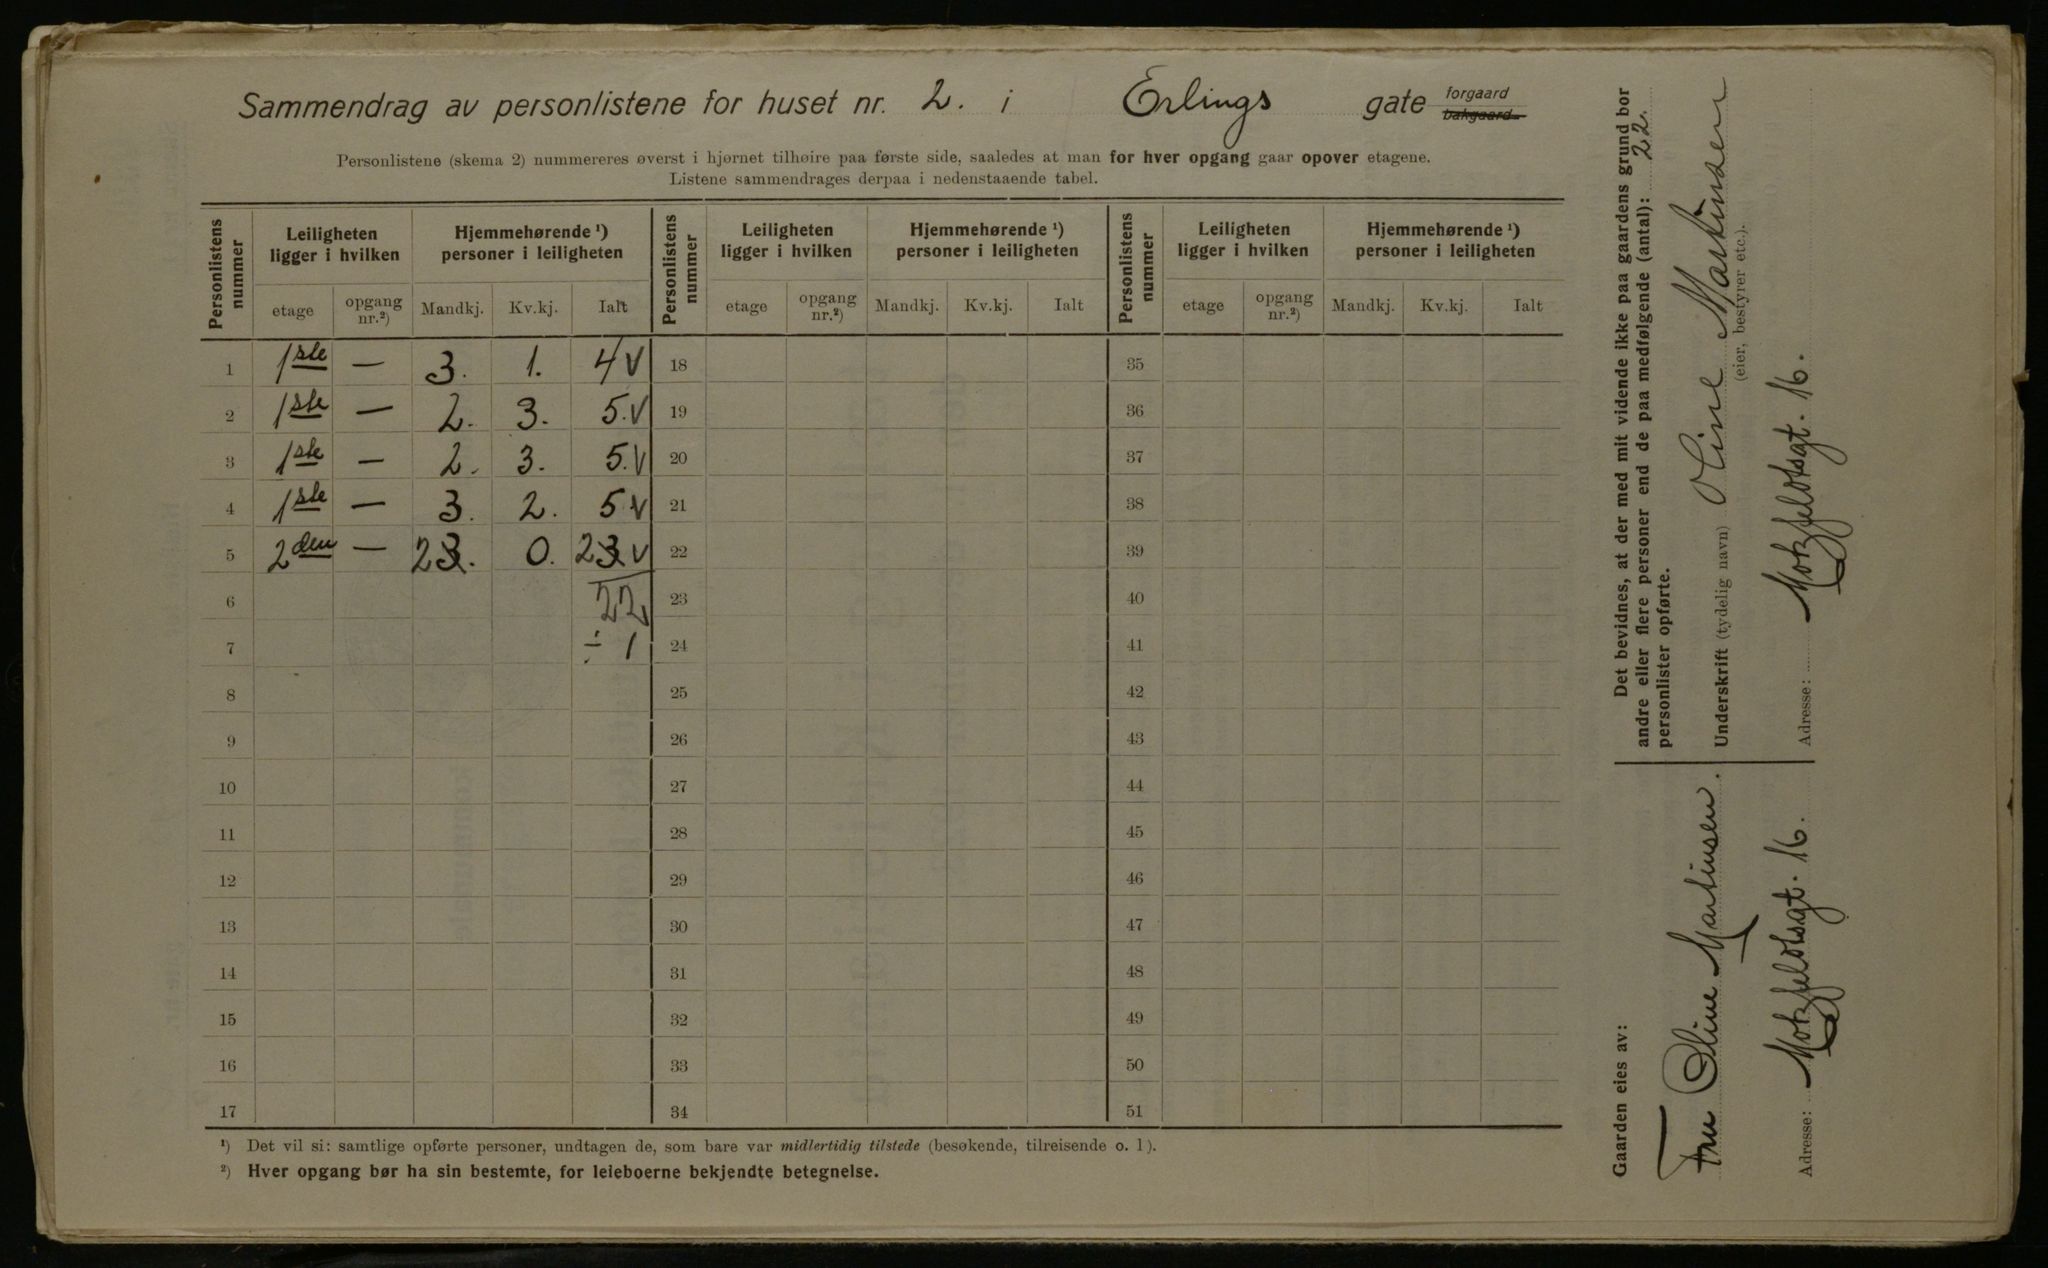 Sammendrag av personlistene for huset nr. 2. i Erlings gate forgaard bakgaard
Personlistene (skema 2) nummereres øverst i hjørnet tilhøire paa første side, saaledes at man for hver opgang gaar opover etagene.
Listene sammendrages derpaa i nedenstaaende tabel.
Personlistens nummer | Leiligheten ligger i hvilken | Hjemmehørende ¹) personer i leiligheten | Personlistens nummer | Leiligheten ligger i hvilken | Hjemmehørende ¹) personer i leiligheten | Personlistens nummer | Leiligheten ligger i hvilken | Hjemmehørende ¹) personer i leiligheten
etage | opgang nr.²) | Mandkj. | Kv.kj. | Ialt | etage | opgang nr.²) | Mandkj. | Kv.kj. | Ialt | etage | opgang nr.²) | Mandkj. | Kv.kj. | Ialt
1 | 1ste | — | 3. | 1. | 4 v | 18 | 35
2 | 1ste | — | 2. | 3. | 5. v | 19 | 36
3 | 1ste | — | 2. | 3. | 5. v | 20 | 37
4 | 1ste | — | 3. | 2. | 5 v | 21 | 38
5 | 2den | — | 23. | 0. | 23 v | 22 | 39
6 | 22 | 23 | 40
7 | ÷ 1 | 24 | 41
8 | 25 | 42
9 | 26 | 43
10 | 27 | 44
11 | 28 | 45
12 | 29 | 46
13 | 30 | 47
14 | 31 | 48
15 | 32 | 49
16 | 33 | 50
17 | 34 | 51
¹) Det vil si: samtlige opførte personer, undtagen de, som bare var midlertidig tilstede (besøkende, tilreisende o. l).
²) Hver opgang bør ha sin bestemte, for leieboerne bekjendte betegnelse.
Gaarden eies av:
Fru Oline Martinsen.
Adresse: Motzfeldtsgt. 16.
Det bevidnes, at der med mit vidende ikke paa gaardens grund bor
andre eller flere personer end de paa medfølgende (antal): 22.
personlister opførte.
Underskrift (tydelig navn) Oline Martinsen
(eier, bestyrer etc.).
Adresse: Motzfeldtsgt. 16.